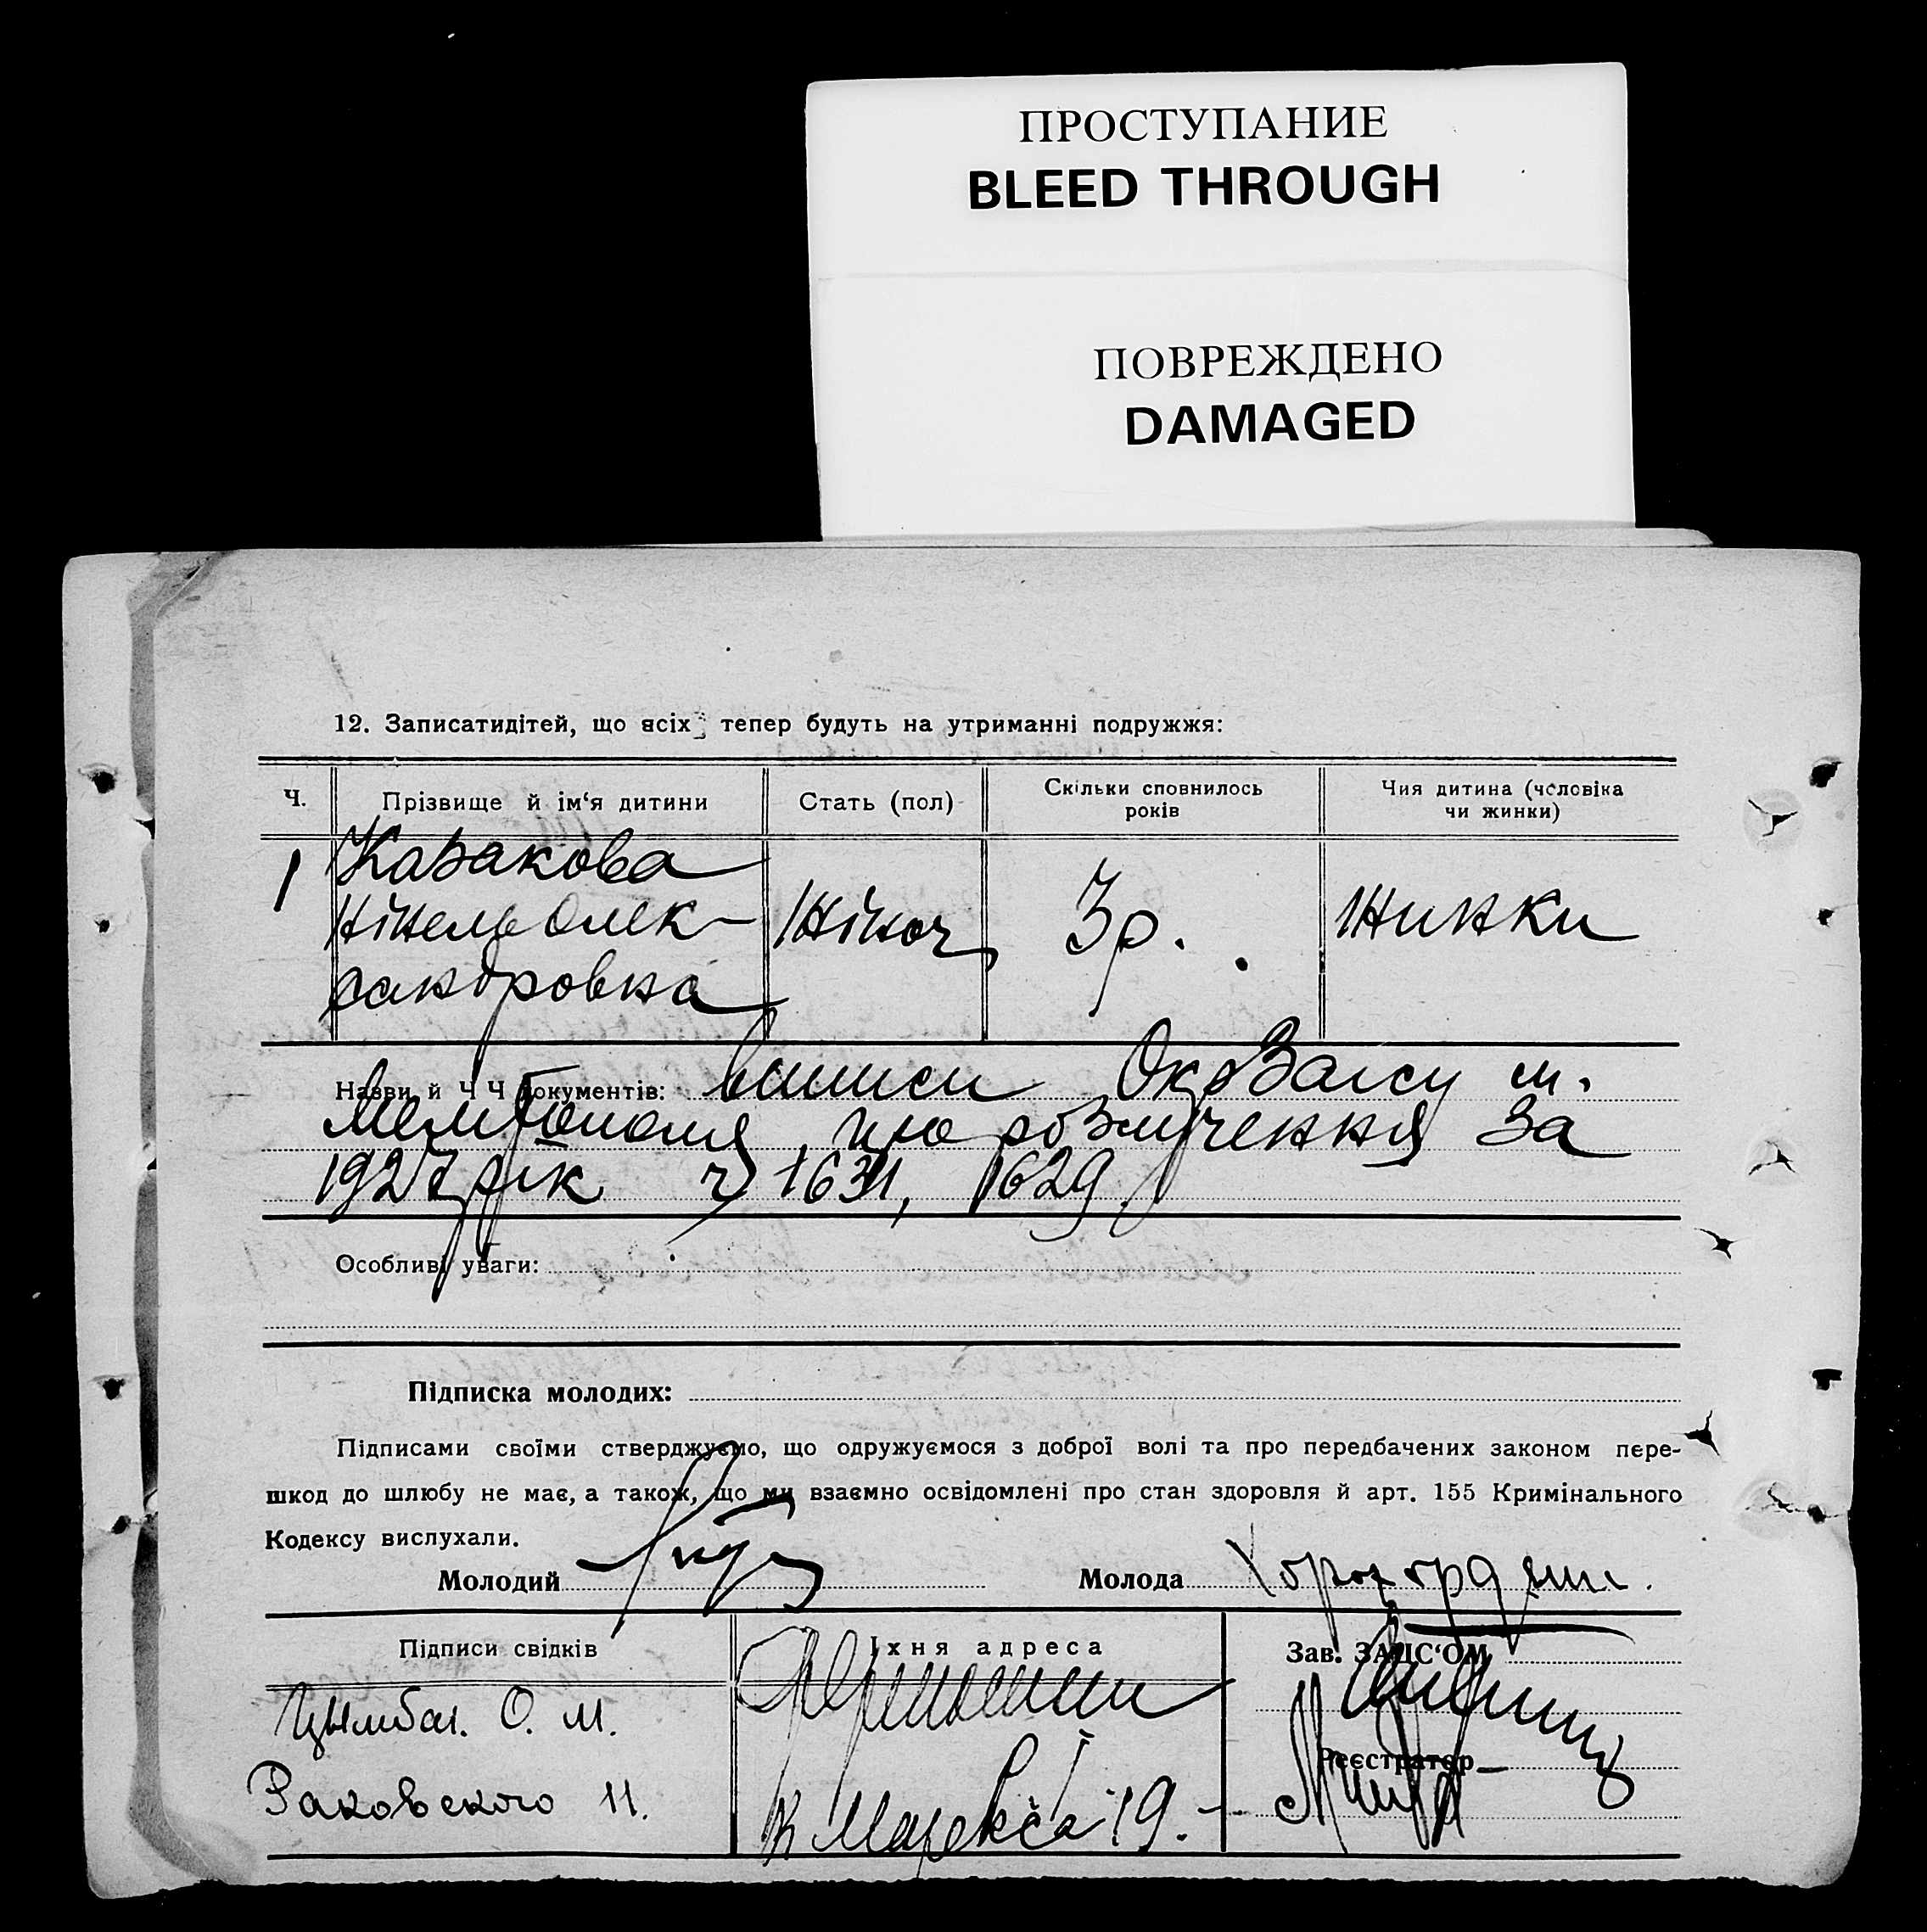 ПРОСТУПАНИЕ
BLEED THROUGH
ПОВРЕЖДЕНО
DAMAGED
12. Записатидітей, що всіх тепер будуть на утриманні подружжя:
Ч.
Прізвище й ім‘я дитини
Стать (пол)
Скільки сповнилось
років
Чия дитина (человіка
чи жинки)
1
Казакова
Нінель Олек-
сандровна
Жіноч
3 р.
Жинки
Назви й Ч Ч документів: виписи ОкрЗагсу м.
Мелітополя про розлучення за
1927 рік ч 1631, 1629
Особливі уваги:
Підписка молодих:
Підписами своїми стверджуємо, що одружуємося з доброї волі та про передбачених законом пере-
шкод до шлюбу не має, а також, що ми взаємно освідомлені про стан здоровля й арт. 155 Кримінального
Кодексу вислухали.
Молодий
Молода
Підписи свідків
Їхня адреса
Зав. ЗАГС‘ОМ
Цымбал. О. М.
Реєстратор
Раковского 11.
К Маркса 19.